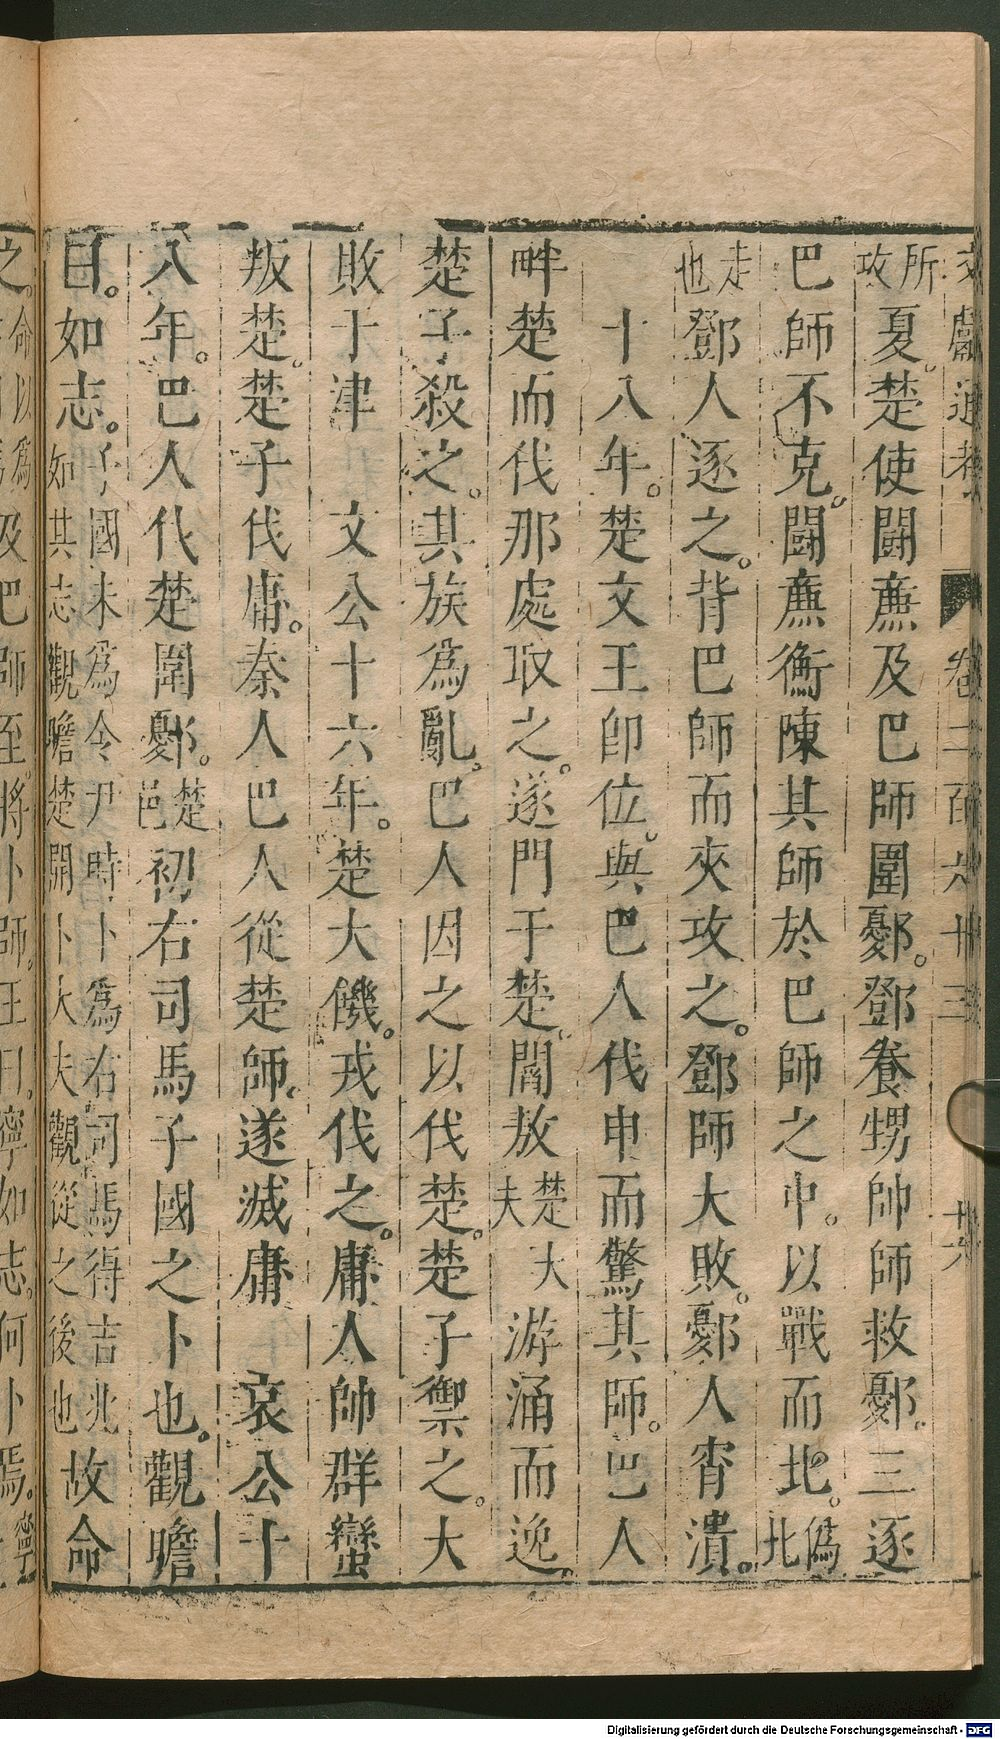 文獻通考 卷二百六十三 十六
所攻夏。楚使鬬廉及巴師圍鄾。鄧養甥帥師救鄾。三逐
巴師不克。鬬廉衡陳其師於巴師之中。以戰而北。偽北
走也鄧人逐之。背巴師而夾攻之。鄧師大敗。鄾人宵潰。
十八年。楚文王卽位。與巴人伐申而驚其師。巴人
畔楚而伐那處取之。遂門于楚。閻敖楚大夫游涌而逸。
楚子殺之。其族爲亂。巴人因之以伐楚。楚子禦之。大
敗于津 文公十六年。楚大饑。戎伐之。庸人帥群蠻
叛楚。楚子伐庸。秦人巴人從楚師。遂滅庸 哀公十
八年。巴人伐楚圍鄾。楚邑初右司馬子國之卜也。觀瞻
曰。如志。子國未爲令尹時卜爲右司馬得吉兆如其志觀瞻楚開卜大夫觀從之後也故命
Digitalisierung gefördert durch die Deutsche Forschungsgemeinschaft - DFG